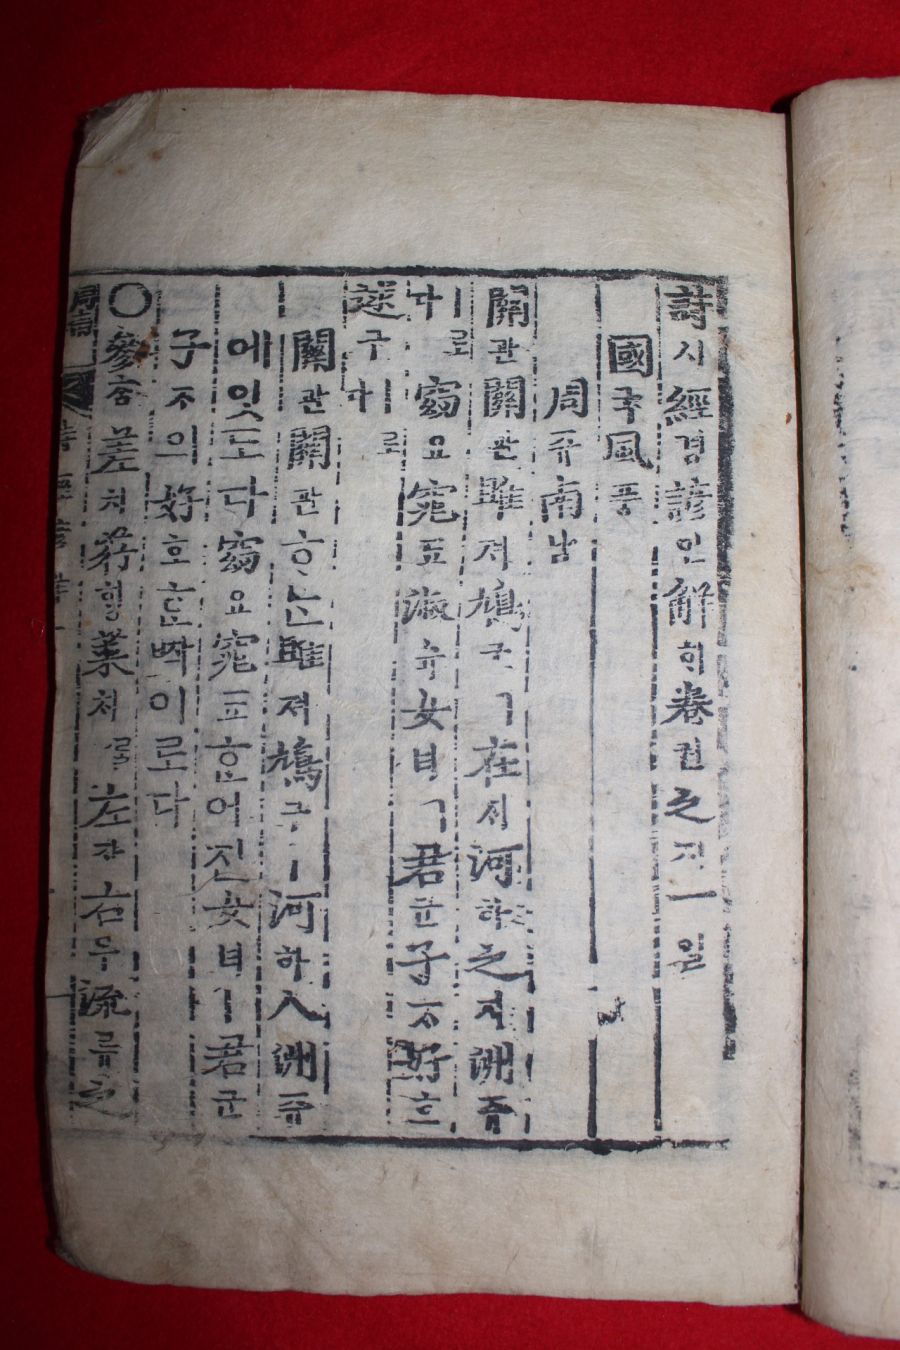 詩시經경諺언解ᄒᆡ卷권之지一일
國국風풍
周쥬南남
關관關관雎져鳩구ㅣ在ᄌᆡ河하之지洲쥬ㅣ로다
窈요窕됴淑슉女녀ㅣ君군子ᄌᆞ好호逑구ㅣ로다
關관關관ᄒᆞᄂᆞᆫ雎져鳩구ㅣ河하人洲쥬
에잇도다窈요窕됴ᄒᆞᆫ어진女녀ㅣ君군
子ᄌᆞ의好호ᄒᆞᆫᄧᅡᆨ이로다
○參ᄎᆞᆷ差치荇ᄒᆡᆼ菜ᄎᆡ를左좌右우流류之